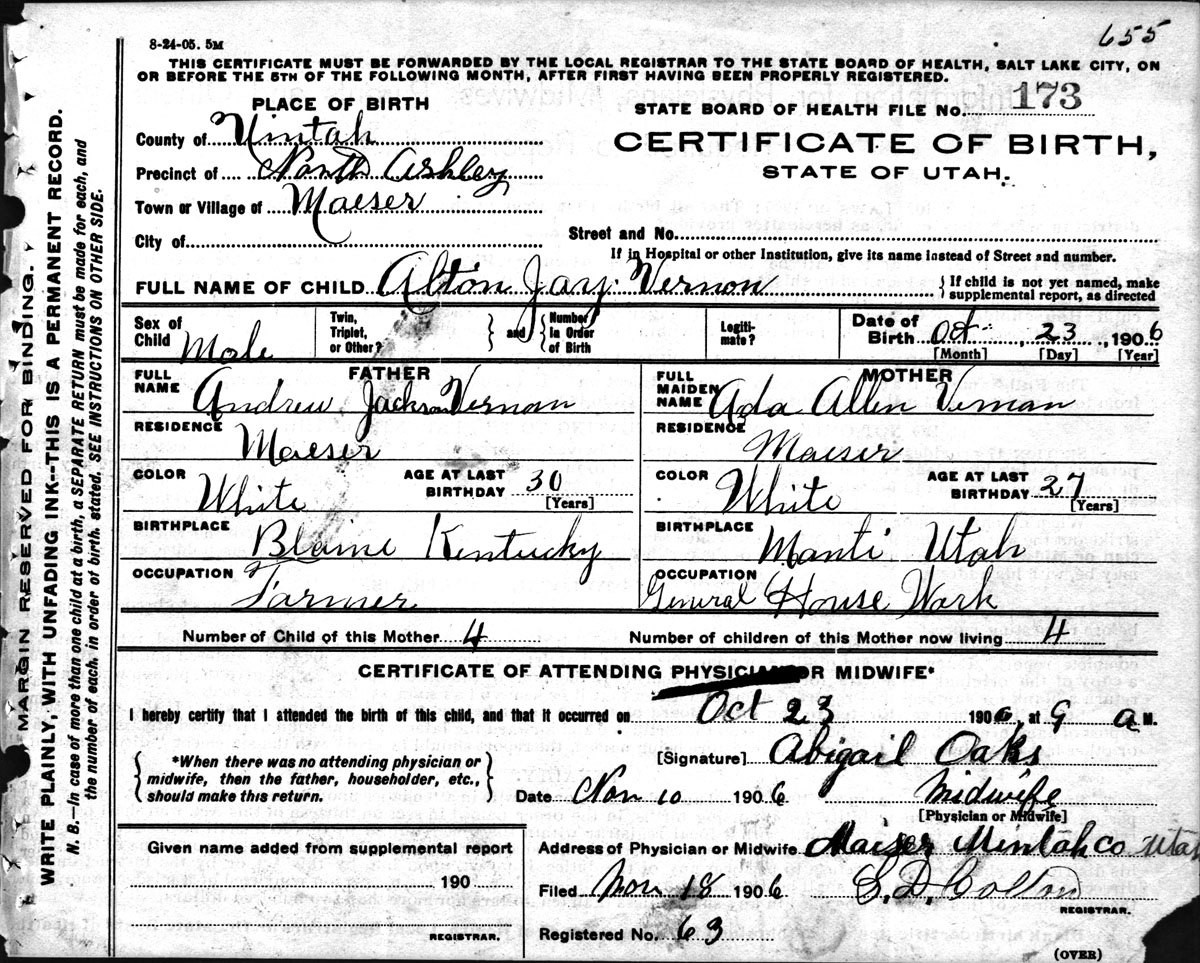 655
8-24-05. 5M
THIS CERTIFICATE MUST BE FORWARDED BY THE LOCAL REGISTRAR TO THE STATE BOARD OF HEALTH, SALT LAKE CITY, ON
OR BEFORE THE 5TH OF THE FOLLOWING MONTH, AFTER FIRST HAVING BEEN PROPERLY REGISTERED.
MARGIN RESERVED FOR BINDING.
WRITE PLAINLY, WITH UNFADING INK--THIS IS A PERMANENT RECORD.
N. B.--In case of more than one child at a birth, a SEPARATE RETURN must be made for each, and
the number of each, in order of birth, stated. SEE INSTRUCTIONS ON OTHER SIDE.
PLACE OF BIRTH
STATE BOARD OF HEALTH FILE No. 173
County of Uintah
CERTIFICATE OF BIRTH,
Precinct of North Ashley
STATE OF UTAH.
Town or Village of Maeser
City of
Street and No.
If in Hospital or other Institution, give its name instead of Street and number.
FULL NAME OF CHILD Alton Jay Vernon
{ If child is not yet named, make
supplemental report, as directed
Sex of Child Male
Twin, Triplet, or Other? } and { Number in Order of Birth
Legiti-mate?
Date of Birth Oct 23, 1906
[Month] [Day] [Year]
FATHER
FULL NAME Andrew Jackson Vernon
RESIDENCE Maeser
COLOR White AGE AT LAST BIRTHDAY 30 [Years]
BIRTHPLACE Blaine Kentucky
OCCUPATION Farmer
MOTHER
FULL MAIDEN NAME Ada Allen Vernan
RESIDENCE Maeser
COLOR White AGE AT LAST BIRTHDAY 27 [Years]
BIRTHPLACE Manti Utah
OCCUPATION General House Work
Number of Child of this Mother 4 Number of children of this Mother now living 4
CERTIFICATE OF ATTENDING PHYSICIAN OR MIDWIFE*
I hereby certify that I attended the birth of this child, and that it occurred on Oct 23 1906, at 9 a M.
{ *When there was no attending physician or
midwife, then the father, householder, etc.,
should make this return. }
[Signature] Abigail Oaks
Date Nov 10 1906 Midwife
[Physician or Midwife]
Given name added from supplemental report
190
REGISTRAR.
Address of Physician or Midwife Maeser Uintah Co Utah
Filed Nov 18 1906 S. D. Colton
REGISTRAR.
Registered No. 63
(OVER)